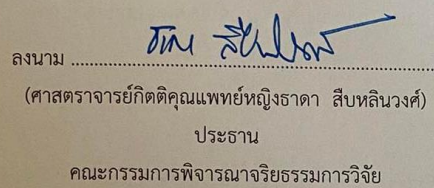 ลงนาม ........................................................................
(ศาสตราจารย์กิตติคุณแพทย์หญิงธาดา สืบหลินวงศ์)
ประธาน
คณะกรรมการพิจารณาจริยธรรมการวิจัย